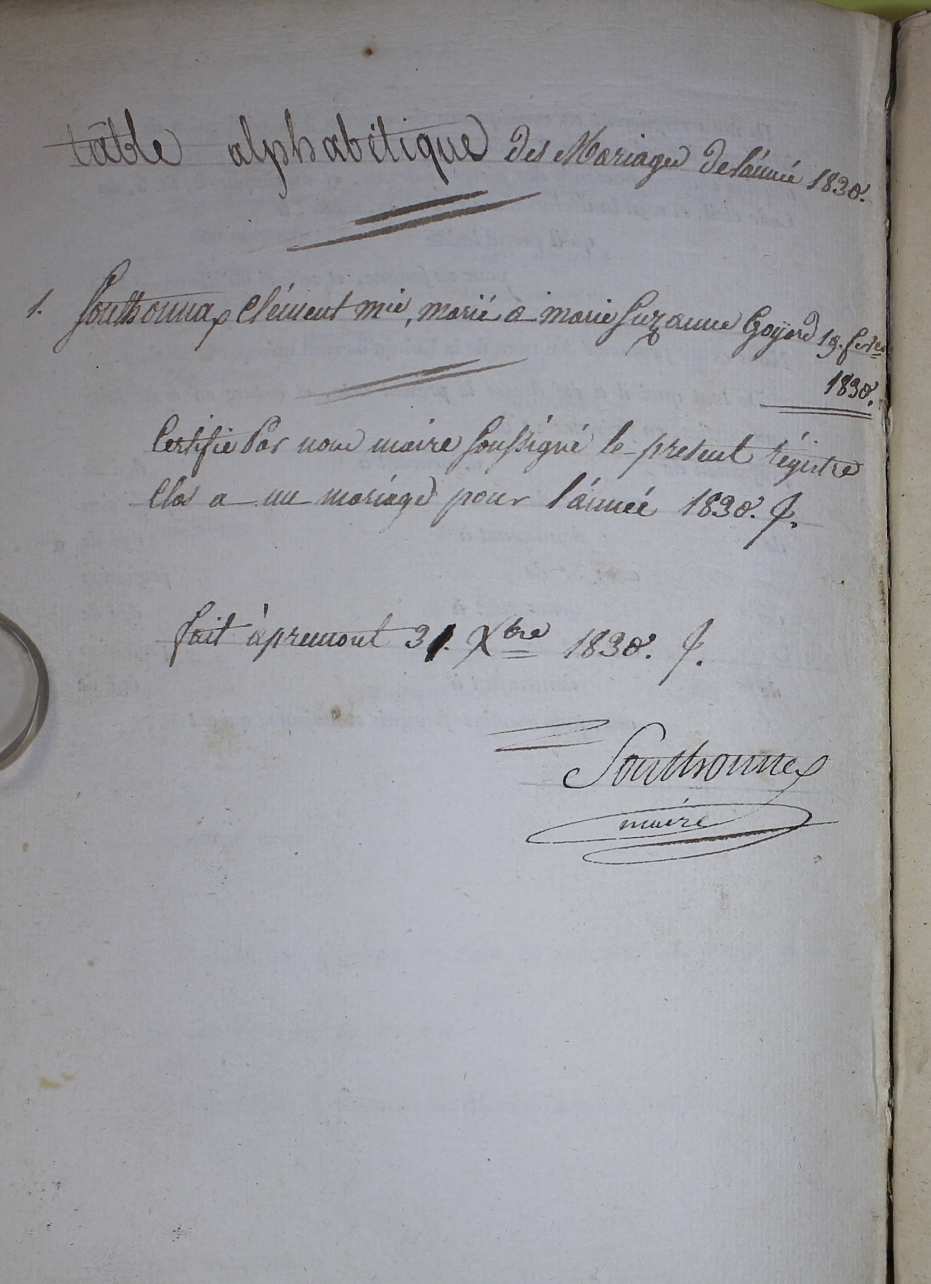 table alphabétique des Mariages de l'année 1830.
1. Southonnax Clément mie, marié a marie Suzanne Goyard 19. fevrier
1830.
Certifié Par nous maire soussigné le present régistre
Clos a un mariage pour l'année 1830.
fait à premont 31. Xbre 1830.
Southonnax
maire